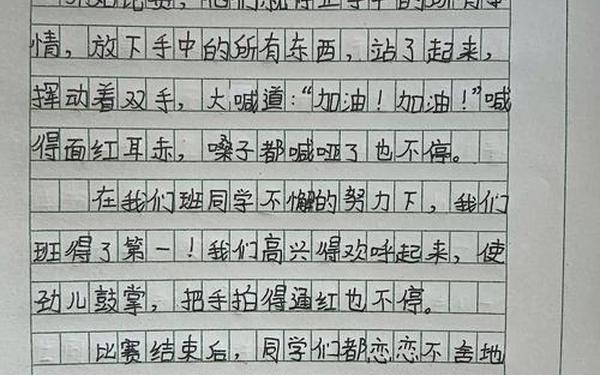 情，放下手中的所有东西，站了起来，
挥动着双手，大喊道：“加油！加油！”喊
得面红耳赤，嗓子都喊哑了也不停。
在我们班同学不懈的努力下，我们
班得了第一！我们高兴得欢呼起来，使
劲儿鼓掌，把手拍得通红也不停。
比赛结束后，同学们都恋恋不舍地